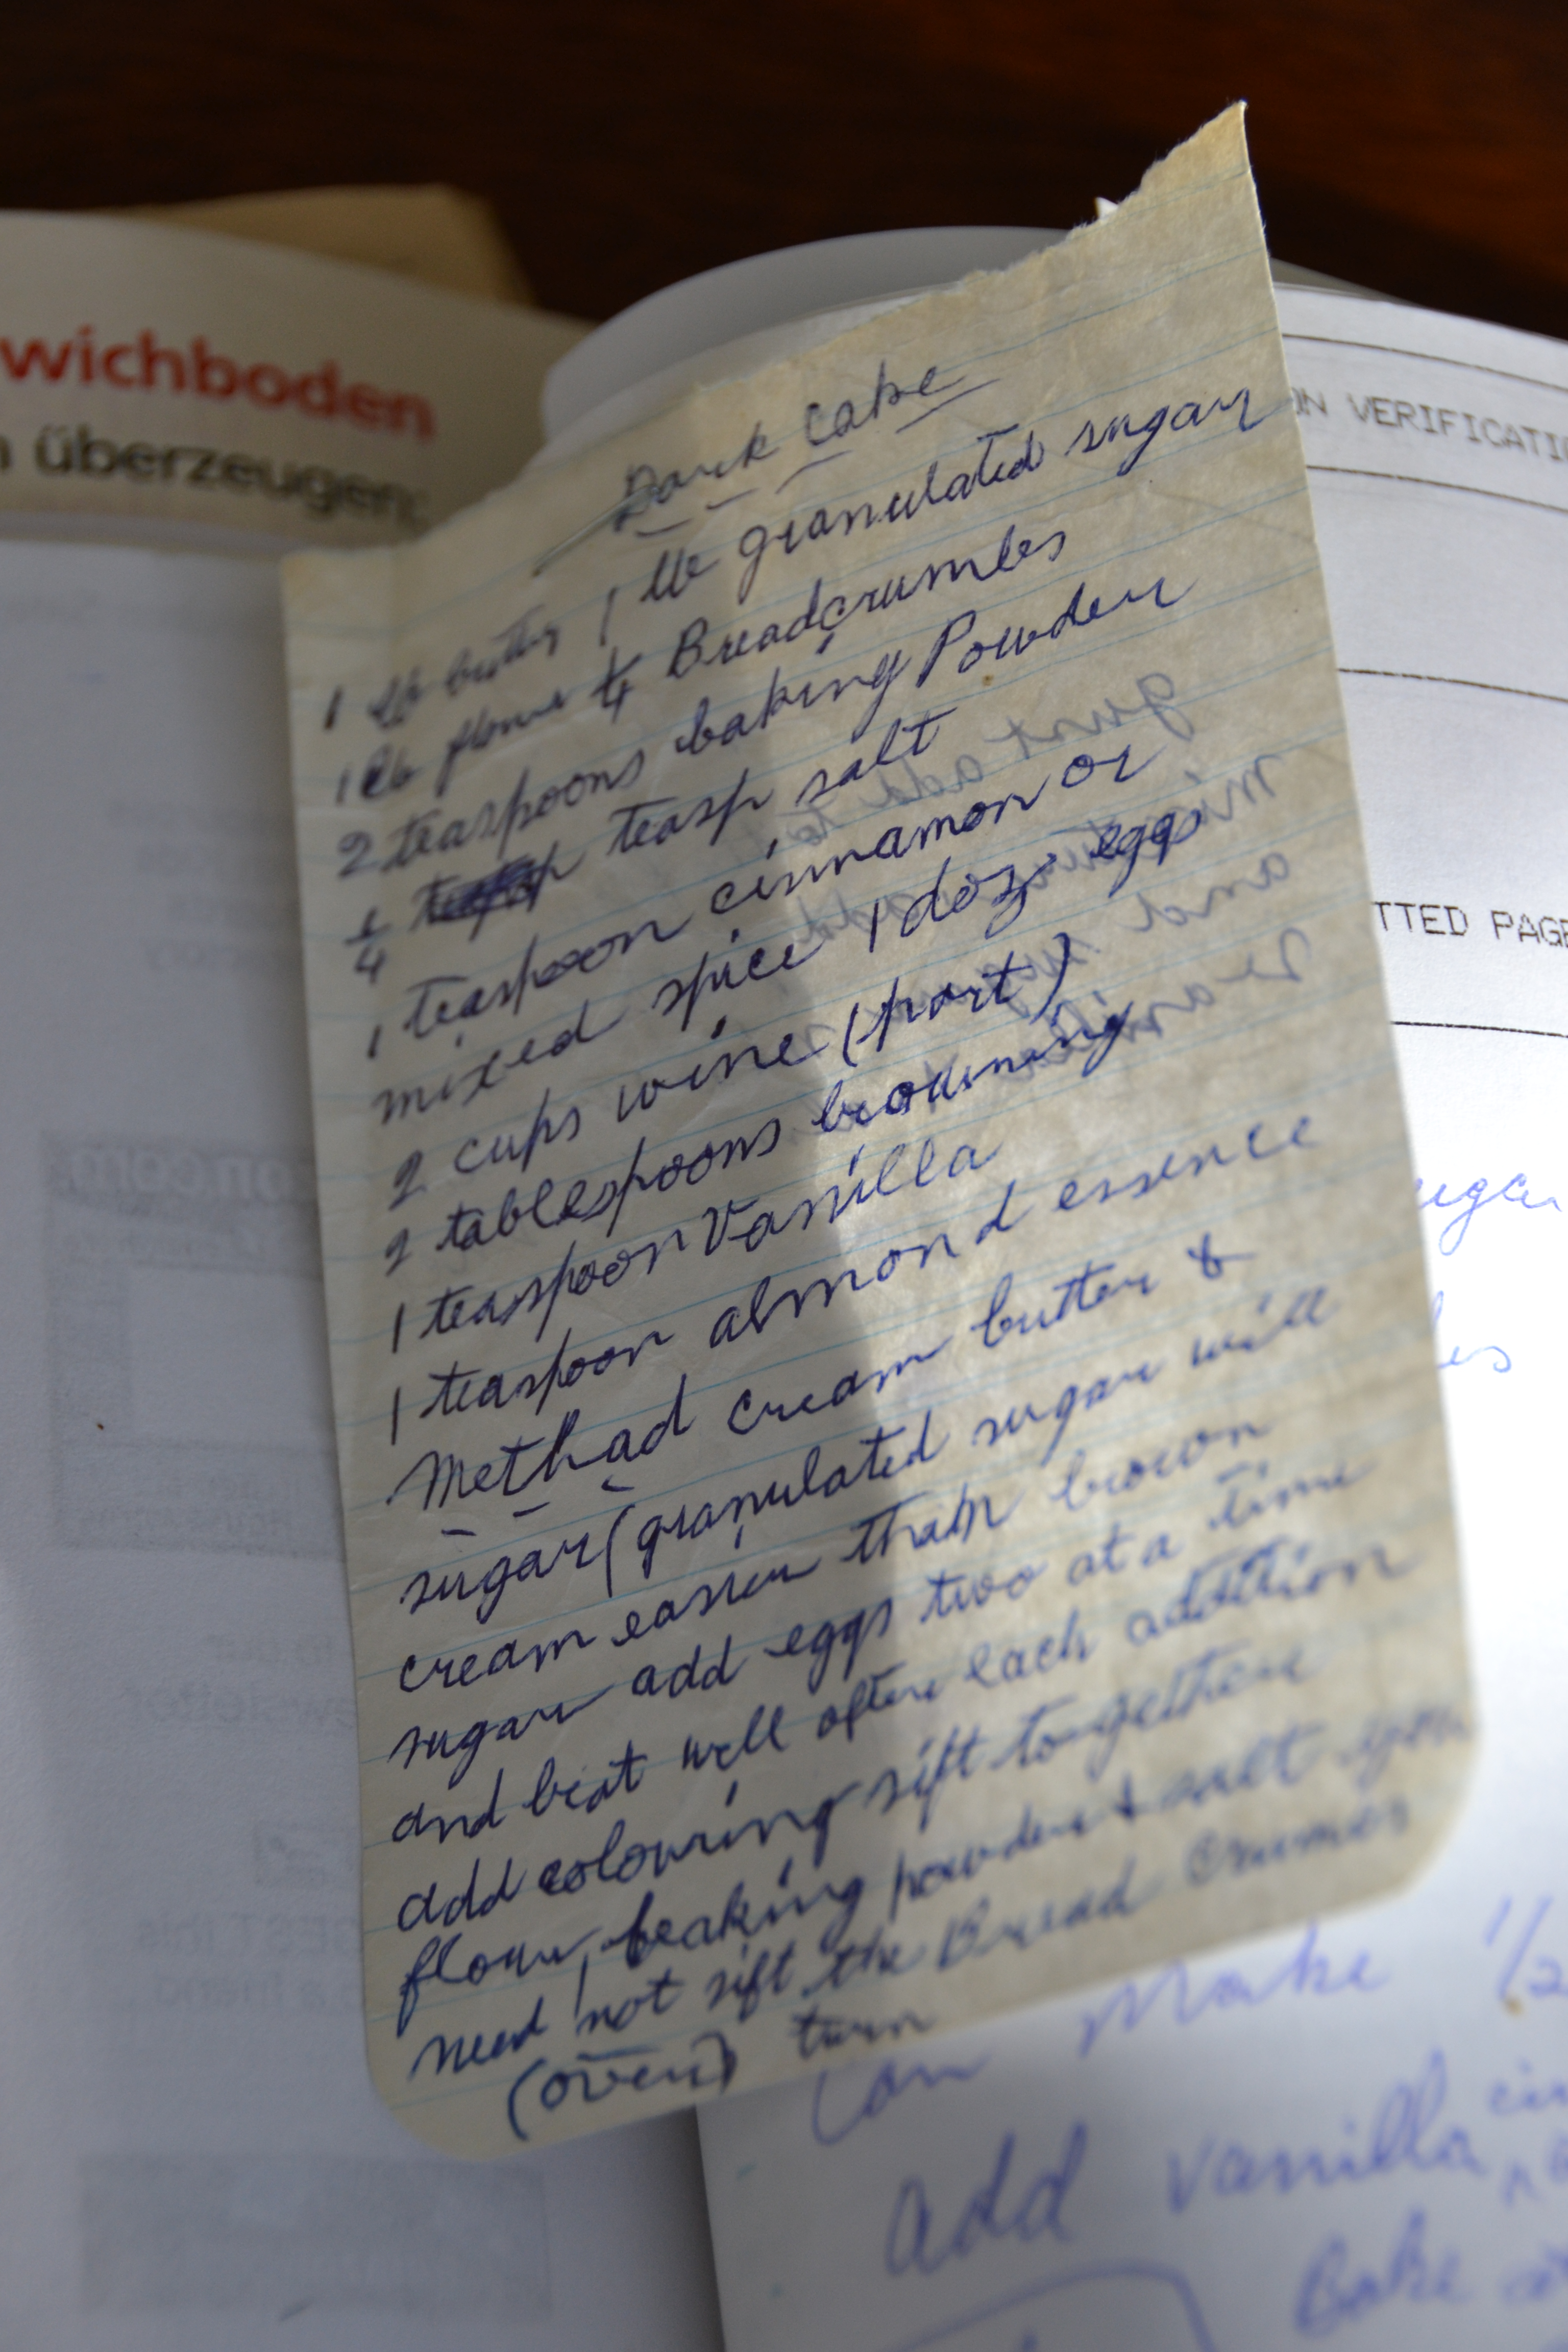 wichboden
überzeugen:
ON VERIFICATI
TTED PAGE
Dark Cake
1 lb butter 1 lb granulated sugar
1 lb flour & 1/4 Breadcrumbs
2 teaspoons baking Powder
1/4 teasp salt
1 teaspoon cinnamon or
mixed spice 1 doz eggs
2 cups wine (port)
2 tablespoons browning
1 teaspoon Vanilla
1 teaspoon almond essence
Method cream butter &
sugar (granulated sugar will
cream easier than brown
sugar add eggs two at a time
and beat well after each addition
add colouring sift together
flour, beaking powder & salt you
need not sift the Bread Crumbs
(over) turn
Can Make 1/2
add vanilla
Bake at